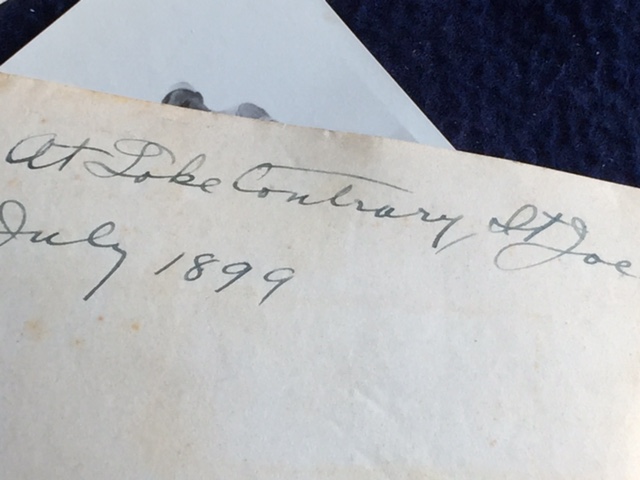 At Lake Contrary, St Joe
July 1899